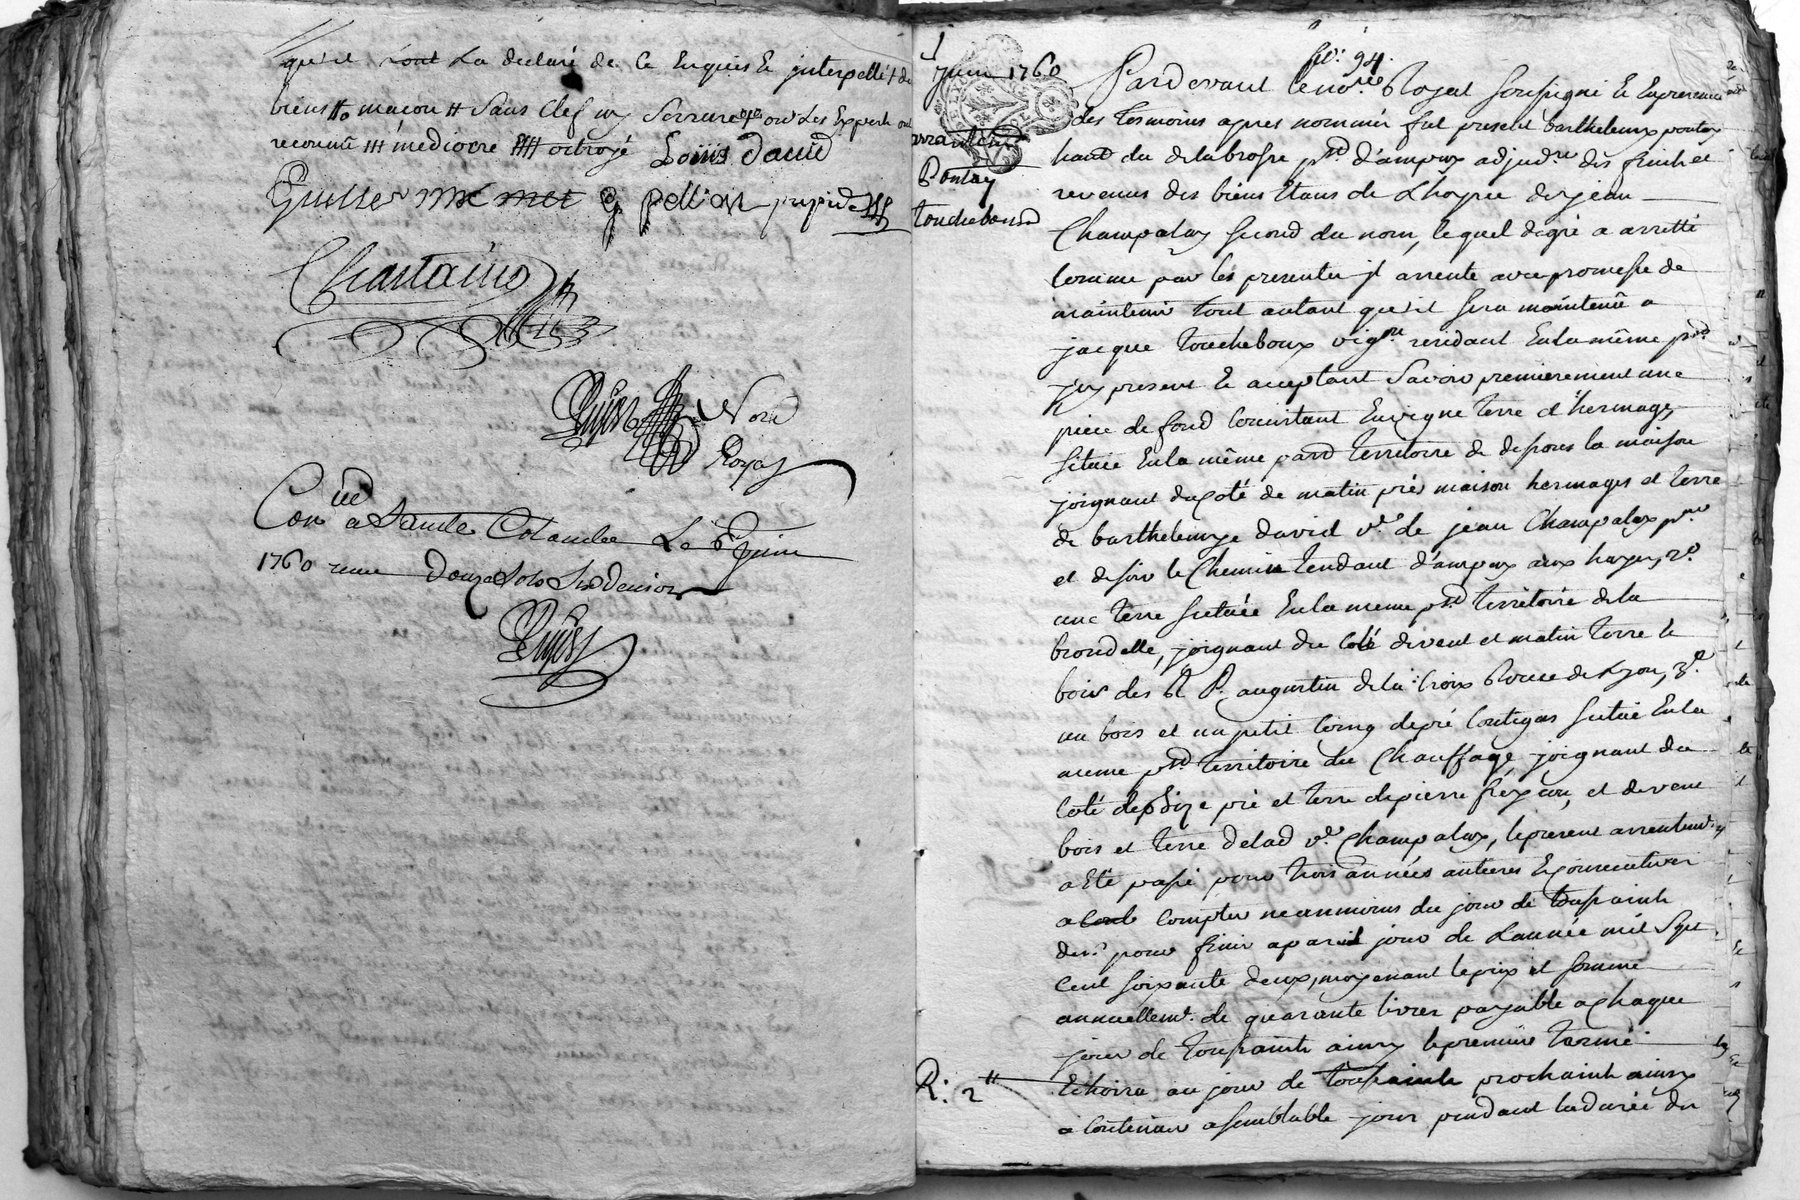 qu'il sont La declaré de Ce Enquis & interpellé † de
biens # maçon # Sans Clef ny Serrure ou Les Experts ont
reconnu ### mediocre #### octroyé Louis david
pellion
Chantaing
Nore
Royal
Con a Sainte Colombe Le 6e Juin
1760 reçu Douze Sols Six Deniers
1 juin 1760
arrantement
Pontay
toucheboeuf
fo. 94.
Pardevant le nore. Royal soussigné & En presence
des tesmoins apres nommés fut present Barthelemy pontay
habt du de la brosse psse d'ampuy adjudre des fruits et
revenus des biens Etans de L'hoyrie de jean
Champalay second du nom, lequel de gré a arretté
comme par les presentes jl arrente avec promesse de
maintenir tout autant qu'il sera maintenu a
jacque toucheboux vigon residant En la même psse
jcy present & acceptant Savoir premierement une
piece de fond consistant En vigne terre et hermages
située En la même parsse territoire de dessous la maison
joignant du coté de matin pré maison hermages et terre
de barthelemye david ve de jean Champalay
et de soir le Chemin tendant d'ampuy aux hayes, 2o
une terre scituée En la meme psse territoire de la
brondelle, joignant du coté de vent et matin terre &
bois des R. P. augustin de la Croix Rousse de Lyon, 3e
un bois et un petit coing de pré contigus scitué En la
meme psse territoire du Chauffage joignant du
coté de bize pré et terre de pierre frezon, et de vent
bois et terre de lad ve. Champalay, le present arrentemt.
a Eté passé pour trois années antieres & consecutives
a compter neanmoins du jour de toussaint
dere. pour finir a pareil jour de L'année mil Sept
Cent soixante deux, moyenant le prix et somme
annuellemt. de quarante livres payable a chaque
jour de toussaint ainsy le premier terme
Echoira au jour de toussainte prochainte ainsy
a continuer a semblable jour pendant la durée du
R: 2"